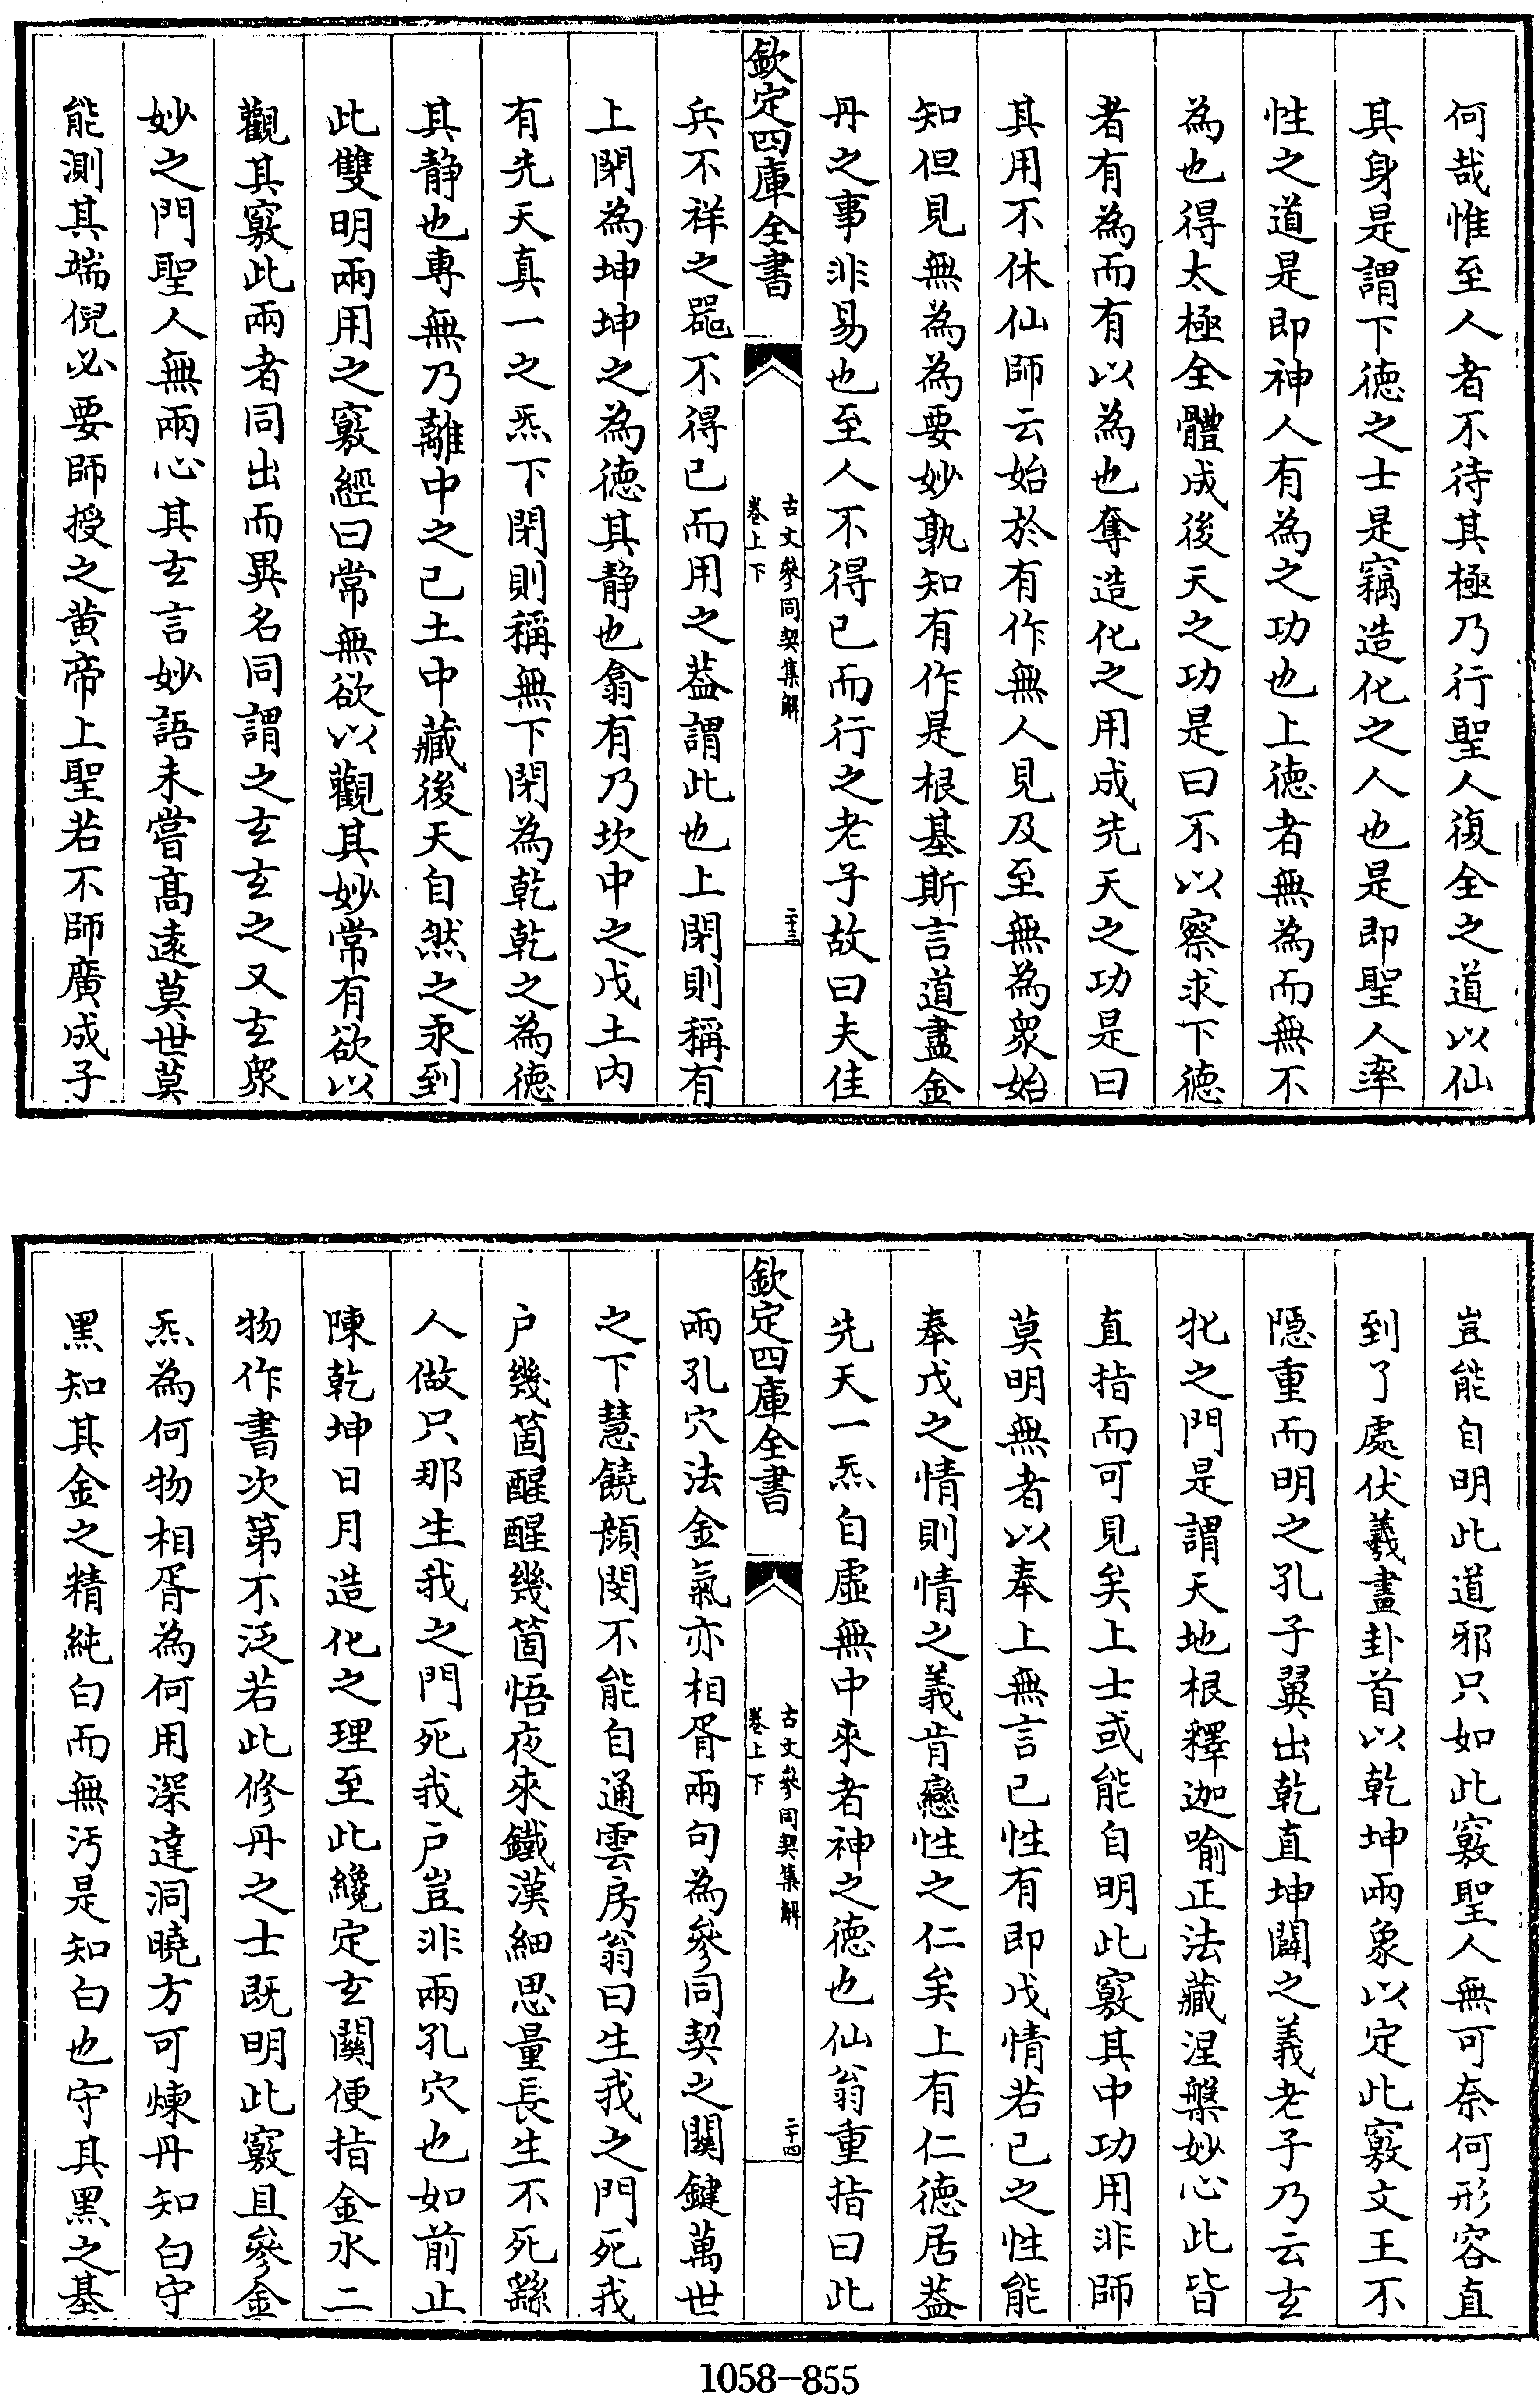 何哉惟至人者不待其極乃行聖人復全之道以仙
其身是謂下徳之士是竊造化之人也是即聖人率
性之道是即神人有為之功也上徳者無為而無不
為也得太極全體成後天之功是曰不以察求下徳
者有為而有以為也奪造化之用成先天之功是曰
其用不休仙師云始於有作無人見及至無為衆始
知但見無為為要妙孰知有作是根基斯言道盡金
丹之事非易也至人不得已而行之老子故曰夫佳
欽定四庫全書
古文參同契集解
卷上下
二十三
兵不祥之器不得已而用之葢謂此也上閉則稱有
上閉為坤坤之為徳其静也翕有乃坎中之戊土内
有先天真一之炁下閉則稱無下閉為乾乾之為徳
其静也專無乃離中之己土中藏後天自然之汞到
此雙明兩用之竅經曰常無欲以觀其妙常有欲以
觀其竅此兩者同出而異名同謂之玄玄之又玄衆
妙之門聖人無兩心其玄言妙語未嘗高遠莫世莫
能測其端倪必要師授之黄帝上聖若不師廣成子
豈能自明此道邪只如此竅聖人無可奈何形容直
到了處伏羲畫卦首以乾坤兩象以定此竅文王不
隱重而明之孔子翼出乾直坤闢之義老子乃云玄
牝之門是謂天地根釋迦喻正法藏涅槃妙心此皆
直指而可見矣上士或能自明此竅其中功用非師
莫明無者以奉上無言已性有即戊情若已之性能
奉戊之情則情之義肯戀性之仁矣上有仁徳居葢
先天一炁自虚無中來者神之徳也仙翁重指曰此
欽定四庫全書
古文參同契集解
卷上下
二十四
兩孔穴法金氣亦相胥兩句為參同契之關鍵萬世
之下慧饒顔閔不能自通雲房翁曰生我之門死我
户幾箇醒醒幾箇悟夜來鐵漢細思量長生不死繇
人做只那生我之門死我户豈非兩孔穴也如前止
陳乾坤日月造化之理至此纔定玄關便指金水二
物作書次第不泛若此修丹之士既明此竅且參金
炁為何物相胥為何用深達洞曉方可煉丹知白守
黑知其金之精純白而無汚是知白也守其黑之基
1058-855